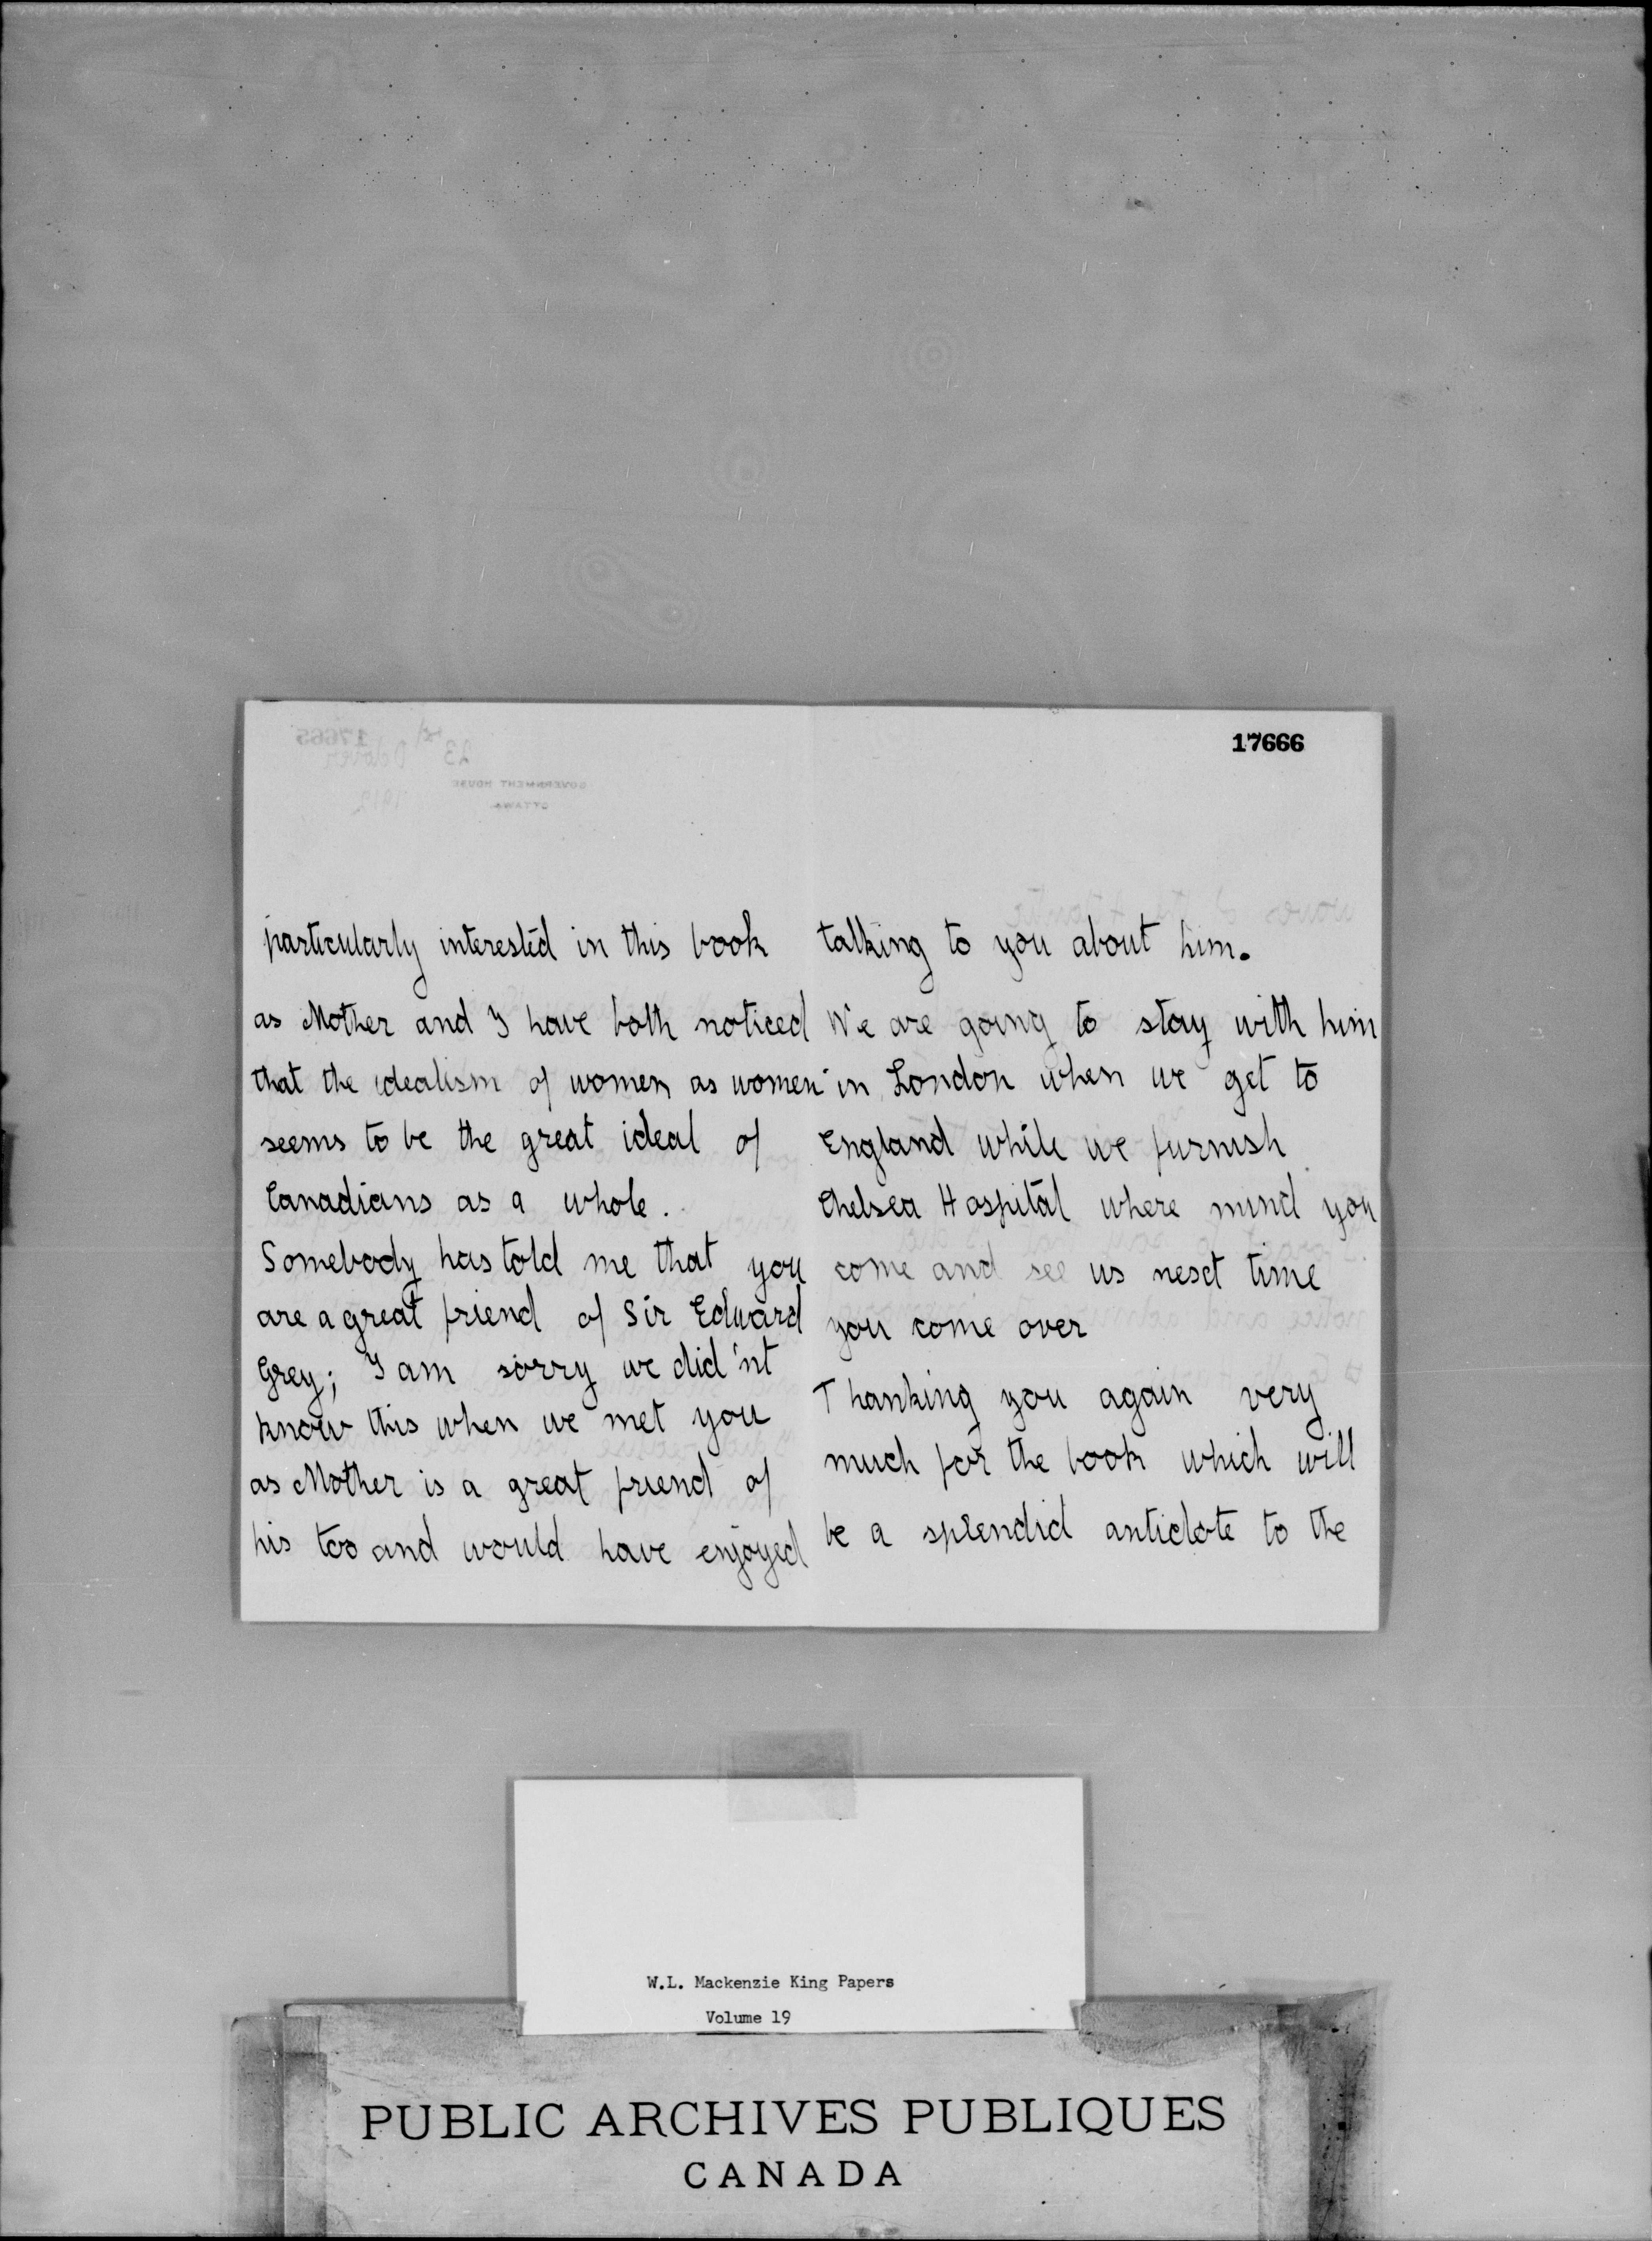 17666
particularly interested in this book
as Mother and I have both noticed
that the idealism of women as women
seems to be the great ideal of
Canadians as a whole.
Somebody has told me that you
are a great friend of Sir Edward
Grey; I am sorry we did'nt
know this when we met you
as Mother is a great friend of
his too and would have enjoyed
talking to you about him.
We are going to stay with him
in London when we get to
England while we furnish
Chelsea Hospital where mind you
come and see us next time
you come over
Thanking you again very
much for the book which will
be a splendid antidote to the
W.L. Mackenzie King Papers
Volume 19
PUBLIC ARCHIVES PUBLIQUES
CANADA